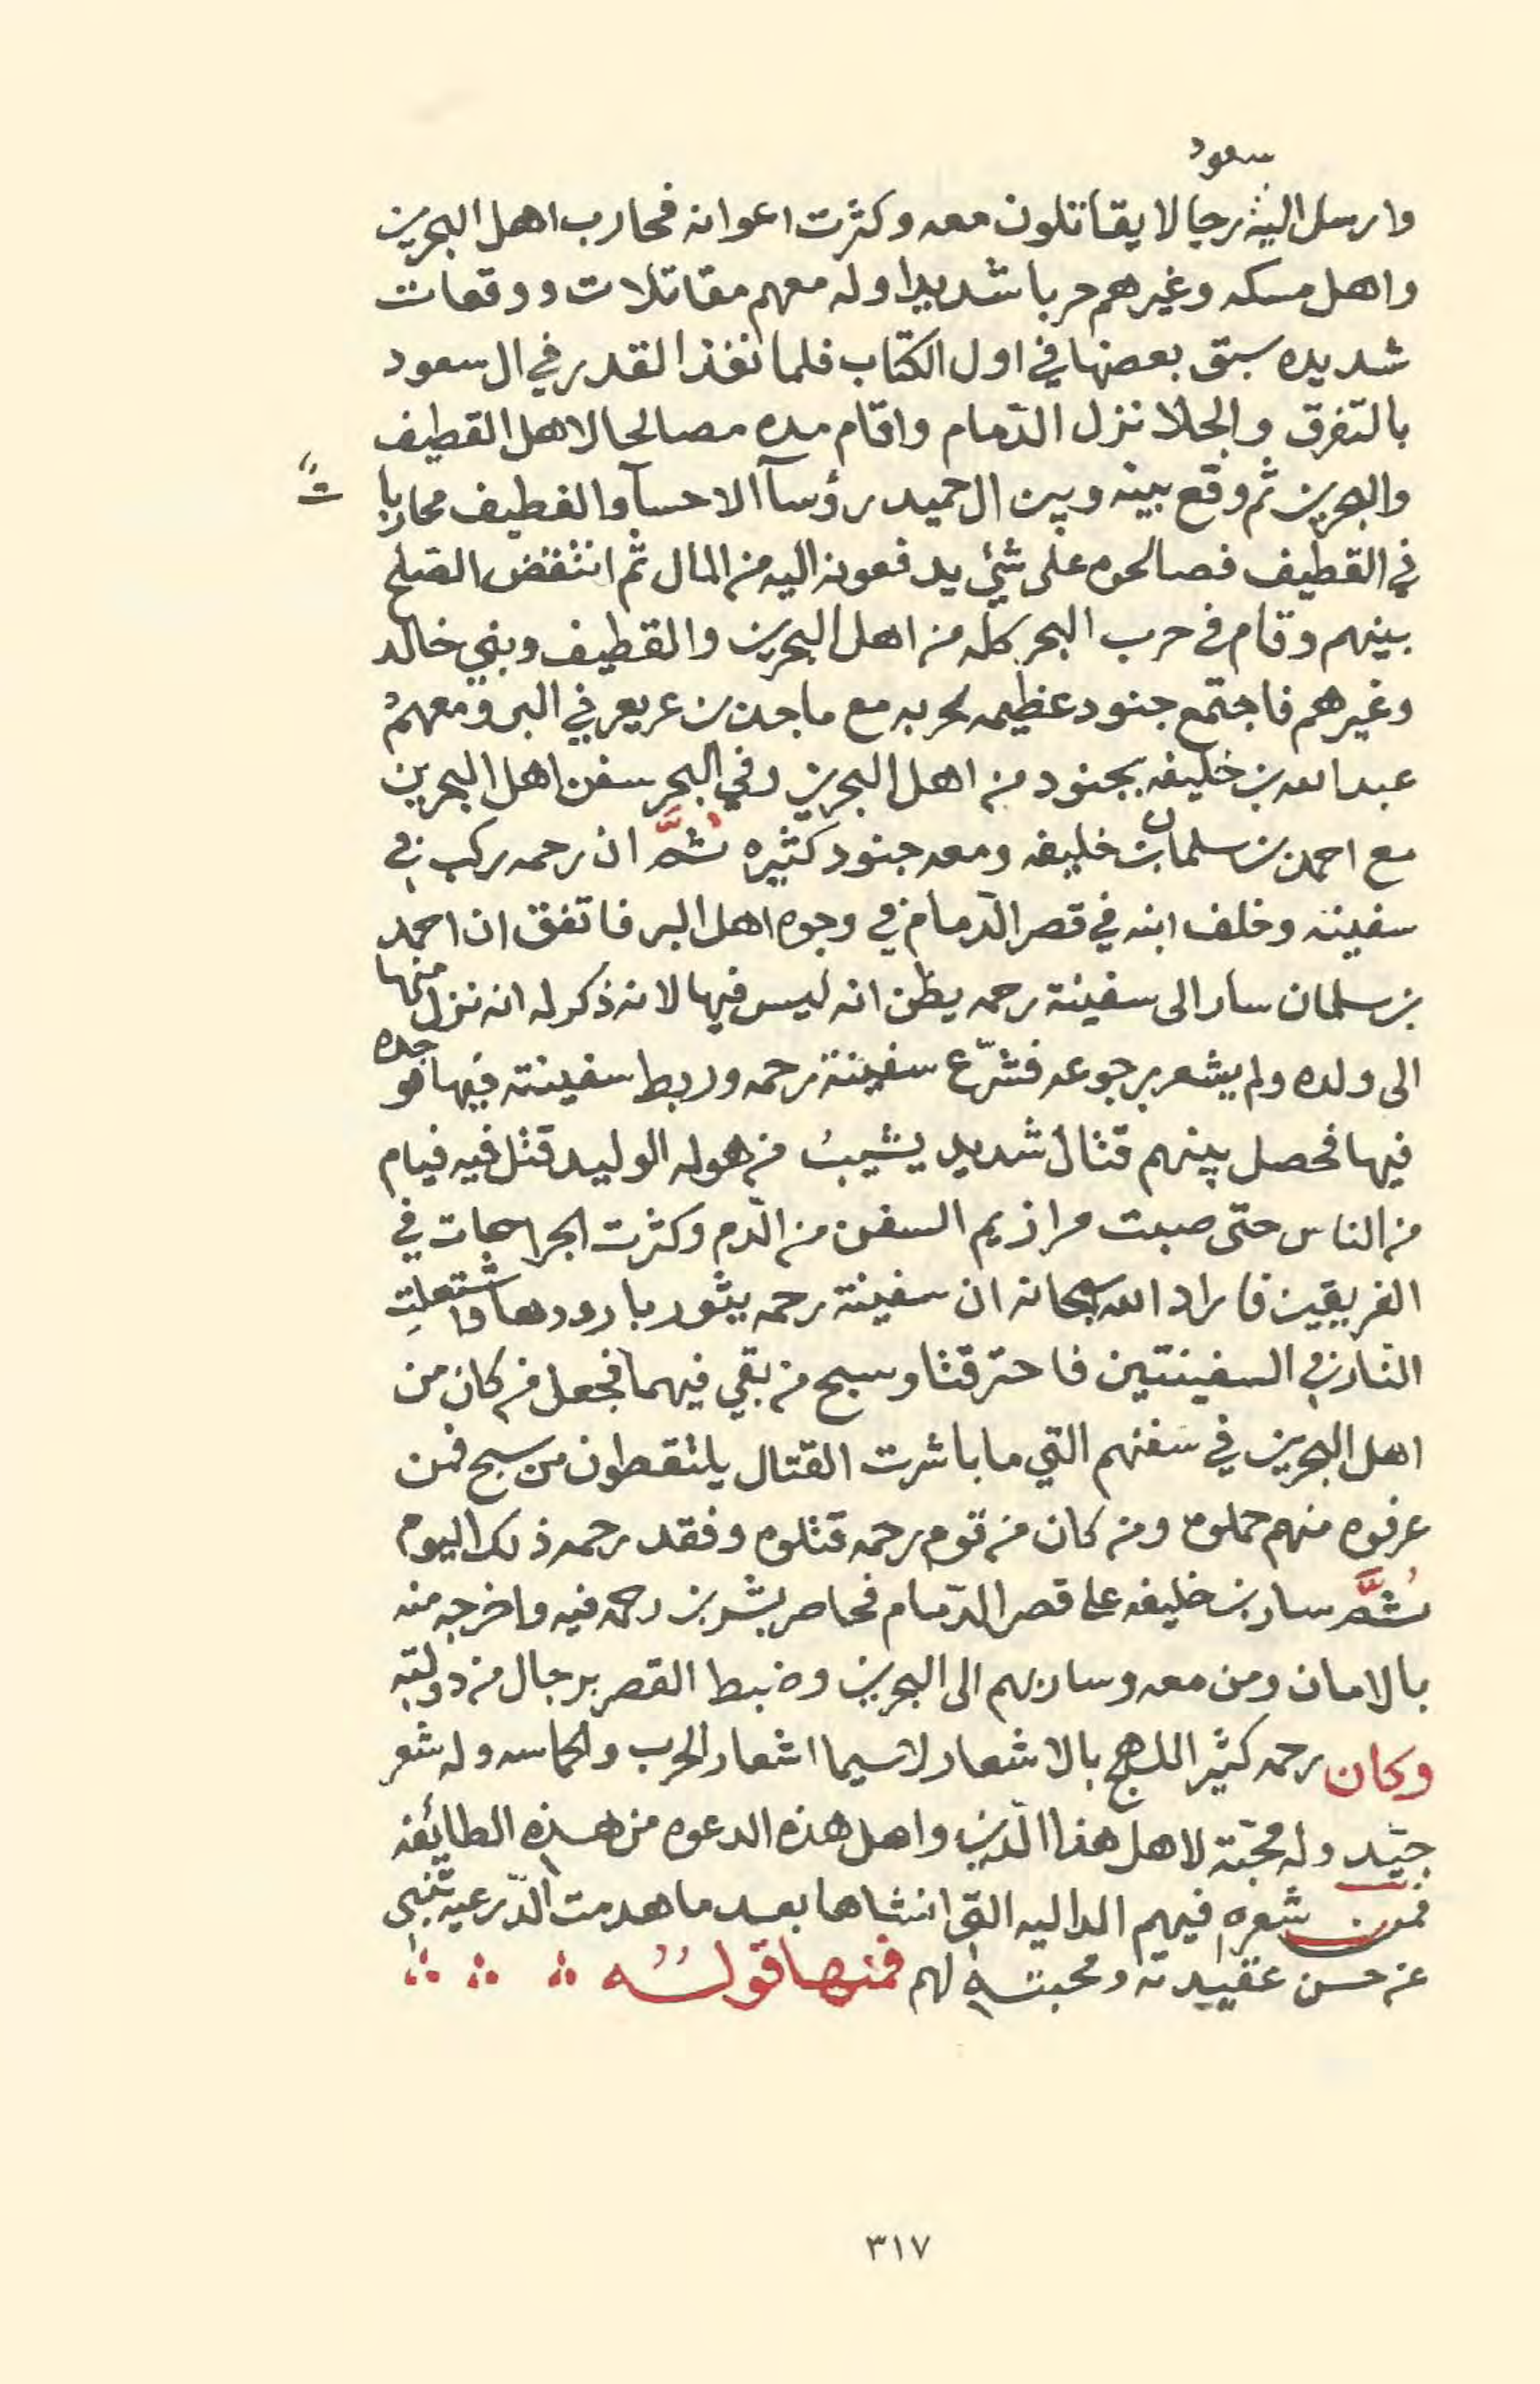 سعود
وارسل اليه رجالا يقاتلون معه وكثرت اعوانه فحارب اهل البحرين
واهل مسكه وغيرهم حربا شديدا وله معهم مقاتلات ووقعات
شديده سبق بعضها في اول الكتاب فلما نفذ القدر في ال سعود
بالتفرق والجلا نزل الدّمام واقام مده مصالحا لاهل القطيف
والبحرين ثم وقع بينه وبين ال حميد رؤسآ الاحسآ والقطيف محاربا
تٌ
في القطيف فصالحوه على شيئ يدفعونه اليه من المال ثم انتقض الصلح
بينهم وقام في حرب البحر كله من اهل البحرين والقطيف وبني خالد
وغيرهم فاجتمع جنود عظيمه لحربه مع ماجد بن عريعر في البر ومعهم
عبدالله بن خليفه بجنود من اهل البحرين وفي البحر سفن اهل البحرين
مع احمد بن سلمان بن خليفه ومعه جنود كثيره ثُمَّ ان رحمه ركب في
سفينته وخلف ابنه في قصر الدّمام في وجوه اهل البر فاتفق ان احمد
بن سلمان سار الى سفينة رحمه يظن انه ليس فيها لانه ذكر له انه نزل منها
الى ولده ولم يشعر برجوعه فشرّع سفينة رحمه وربط سفينته فيها فوجده
فيها فحصل بينهم قتال شديد يشيبُ من هوله الوليد قتل فيه فيام
من الناس حتى صبت مرازيم السفن من الدّم وكثرت الجراحات في
الفريقين فاراد الله سبحانه ان سفينة رحمه يثور بارودها فاشتعلت
النّار في السفينتين فاحترقتا وسبح من بقي فيهما فجعل من كان من
اهل البحرين في سفنهم التي ما باشرت القتال يلتقطون من سبح فمن
عرفوه منهم حملوه ومن كان من قوم رحمه قتلوه وفقد رحمه ذلك اليوم
ثُمَّ سار بن خليفه على قصر الدّمام فحاصر بشر بن رحمه فيه واخرجه منه
بالامان ومن معه وسار بهم الى البحرين وضبط القصر برجال من دولته
وكان رحمه كثير اللهج بالاشعار لاسيما اشعار الحرب والحماسه وله شعر
جيّد وله محبّة لاهل هذا الدّين واهل هذه الدعوه من هذه الطائفه
فمن شعره فيهم الداليه التي انشاها بعد ما هدمت الدّرعيه تنبي
عن حسن عقيدته ومحبته لهم فمنها قولُه
٣١٧